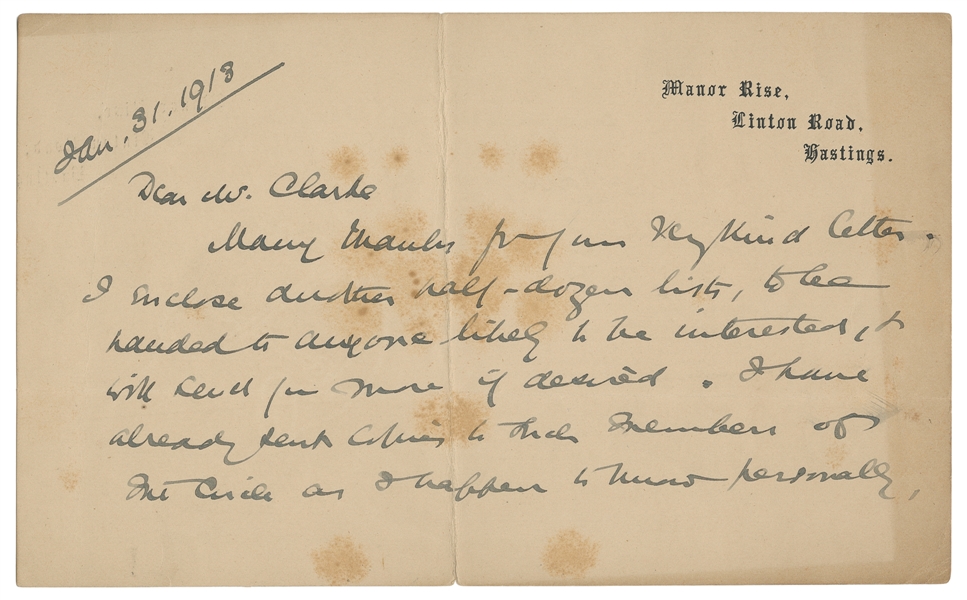 Jan. 31. 1913
Manor Rise,
Linton Road,
Hastings.
Dear Mr. Clarke
Many thanks for your very kind letter.
I enclose another half-dozen lists, to be
handed to anyone likely to be interested, &
will send you more if desired. I have
already sent copies to such members of
The Circle as I happen to know personally,